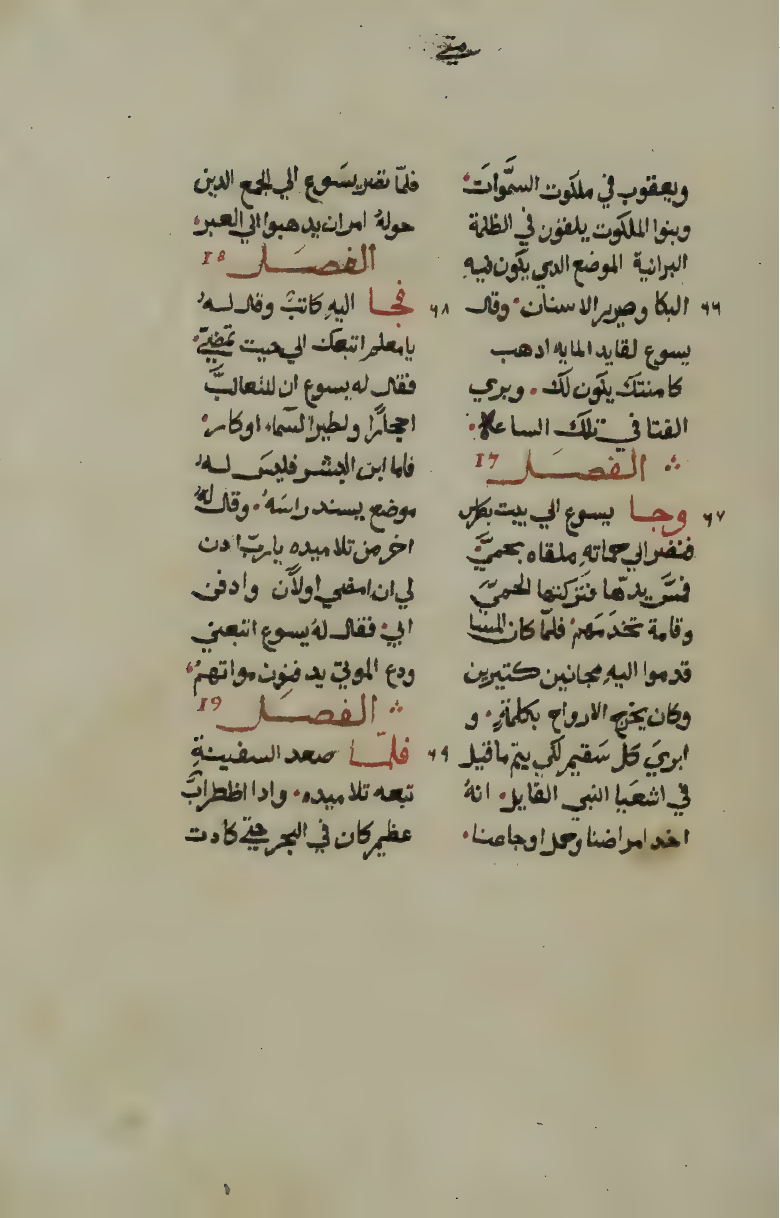 متي
ويعقوب في ملكوت السموات
وبنوا الملكوت يلقون في الظلمة
البرانية الموضع الدي يكون فيه
٦٦ البكا وصرير الاسنان وقال
يسوع لقايد المايه ادهب
كامنتك يكون لك. وبري
الفتا في تلك الساعة
الفصل 17
٦٧ وجا يسوع الي بيت بطرس
فنضر الي حماته ملقاه بحمي
فمس يدها فتركتها الحمي
وقامة تخدمهم فلما كان المسا
قدموا اليه مجانين كتيرين
وكان يخرج الارواح بكلمة. و
ابري كل سقيم لكي يتم ما قيل
في اشعيا النبي القايل. انه
اخد امراضنا وحمل اوجاعنا.
فلما نضر يسوع الي الجمع الدين
حوله امر ان يدهبوا الي العبر
الفصل 18
٦٨ فجا اليه كاتب وقال له
يا معلم اتبعك الي حيت تمضي
فقال له يسوع ان للتعالب
احجارا ولطير السماء اوكار
فاما ابن البشر فليس له
موضع يسند راسه. وقال له
اخر من تلاميده يا رب ادن
لي ان امضي اولا وادفن
ابي فقال له يسوع اتبعني
ودع الموتي يدفنون مواتهم
الفصل 19
٦٩ فلما صعد السفينة
تبعه تلاميده. وادا اظطراب
عظيم كان في البحر حتي كادت